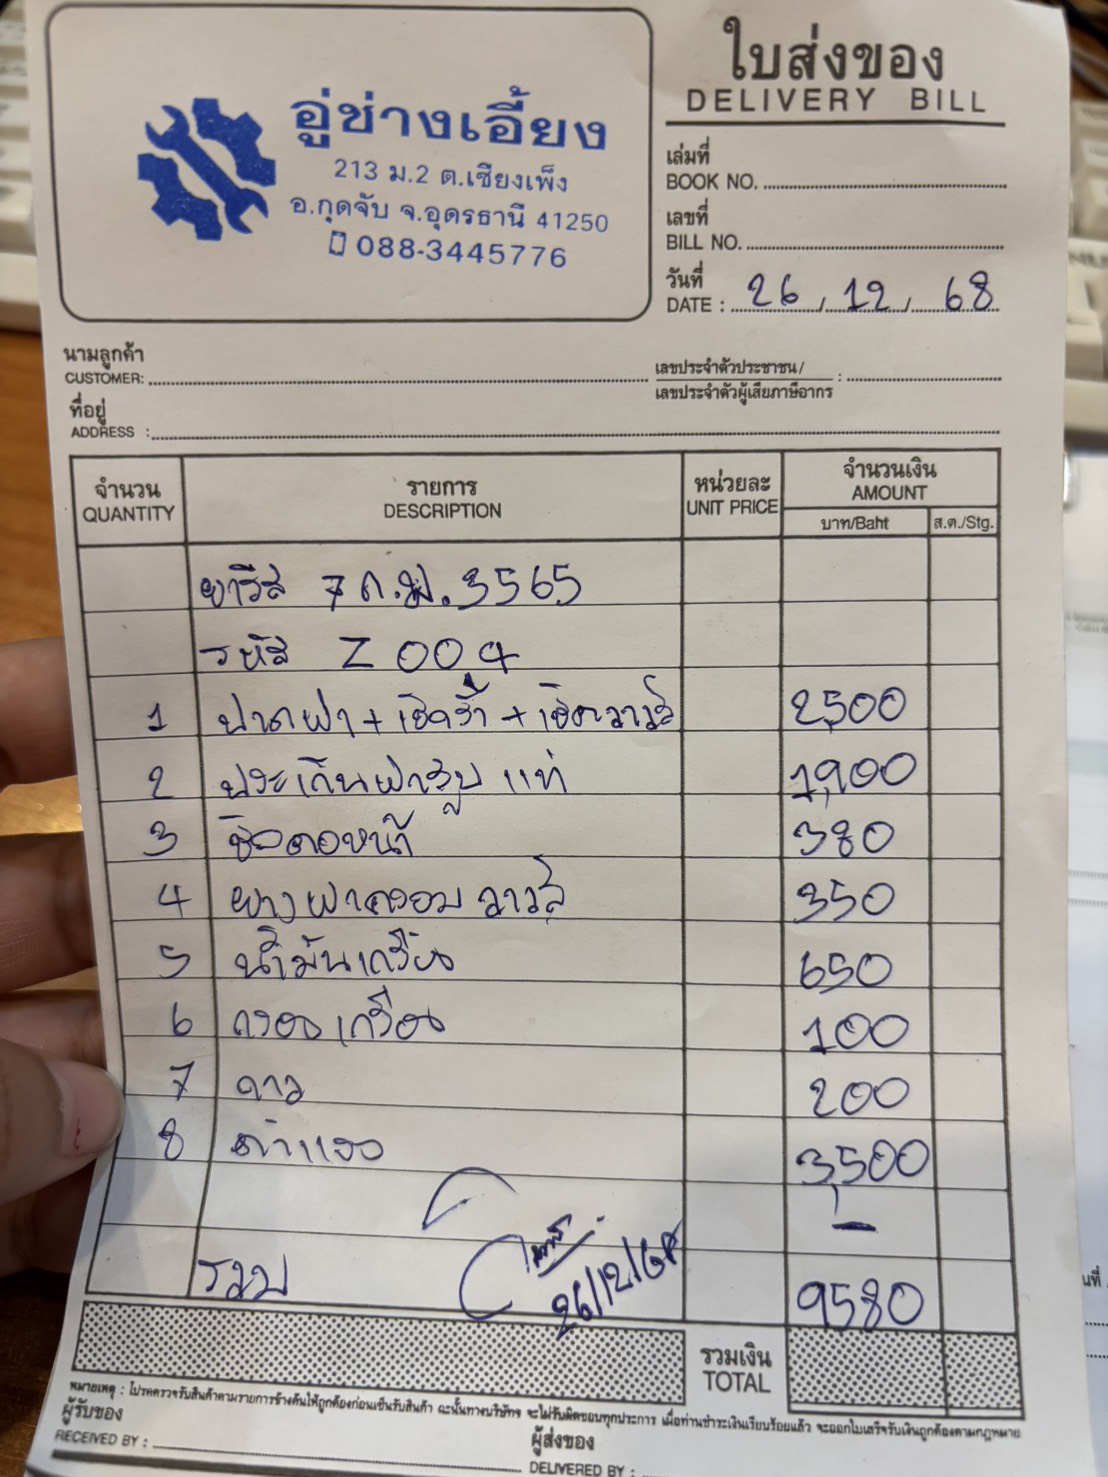 อู่ช่างเอี้ยง
213 ม.2 ต.เชียงเพ็ง
อ.กุดจับ จ.อุดรธานี 41250
088-3445776
ใบส่งของ
DELIVERY BILL
เล่มที่
BOOK NO.
เลขที่
BILL NO.
วันที่
DATE : 26 / 12 / 68
นามลูกค้า
CUSTOMER:
เลขประจำตัวประชาชน/
เลขประจำตัวผู้เสียภาษีอากร :
ที่อยู่
ADDRESS :
จำนวน รายการ หน่วยละ จำนวนเงิน
QUANTITY DESCRIPTION UNIT PRICE AMOUNT
บาท/Baht ส.ต./Stg.
ยาริส 7 ก.พ. 3565
รหัส Z 004
1 ปาดฝา + เช็ครั่ว + เจียวาวล์ 2,500
2 ประเก็นฝาสูบ แท้ 1,900
3 ซีลคอหน้า 380
4 ยางฝาครอบวาวล์ 350
5 น้ำมันเครื่อง 650
6 กรองเครื่อง 100
7 กาว 200
8 ค่าแรง 3,500
รวม 9580
26/12/68
รวมเงิน
TOTAL
หมายเหตุ : โปรดตรวจรับสินค้าตามรายการข้างต้นให้ถูกต้องก่อนเซ็นรับสินค้า ฉะนั้นทางบริษัทฯ จะไม่รับผิดชอบทุกประการ เมื่อท่านชำระเงินเรียบร้อยแล้ว จะออกใบเสร็จรับเงินถูกต้องตามกฎหมาย
ผู้รับของ
RECEIVED BY :
ผู้ส่งของ
DELIVERED BY :